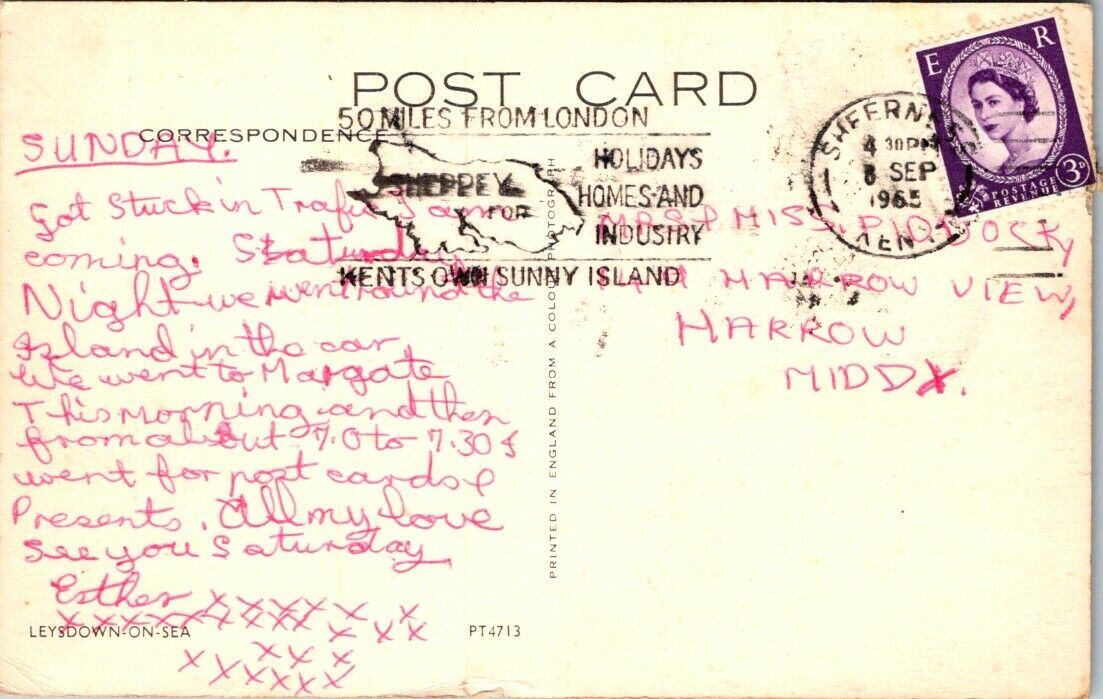 POST CARD
CORRESPONDENCE
50 MILES FROM LONDON
HOLIDAYS
SHEPPEY HOMES AND
FOR INDUSTRY
KENTS OWN SUNNY ISLAND
SHEERNESS
4 30 PM
8 SEP
1965
KENT
E R
POSTAGE
REVENUE
3D
SUNDAY.
Got Stuck in Trafic
coming. Saturday
Night we went round the
Island in the car,
We went to Margate
This morning and then
from about 7.0 to 7.30 I
went for post cards &
Presents. All my love
See you Saturday
Esther x x x x x x x
x x x x x x x x x x x x x
x x x
x x x x x x
MRS & MISS. PIDDOCK,
HARROW VIEW,
HARROW
MIDDX.
PRINTED IN ENGLAND FROM A COLOUR PHOTOGRAPH
LEYSDOWN-ON-SEA
PT4713